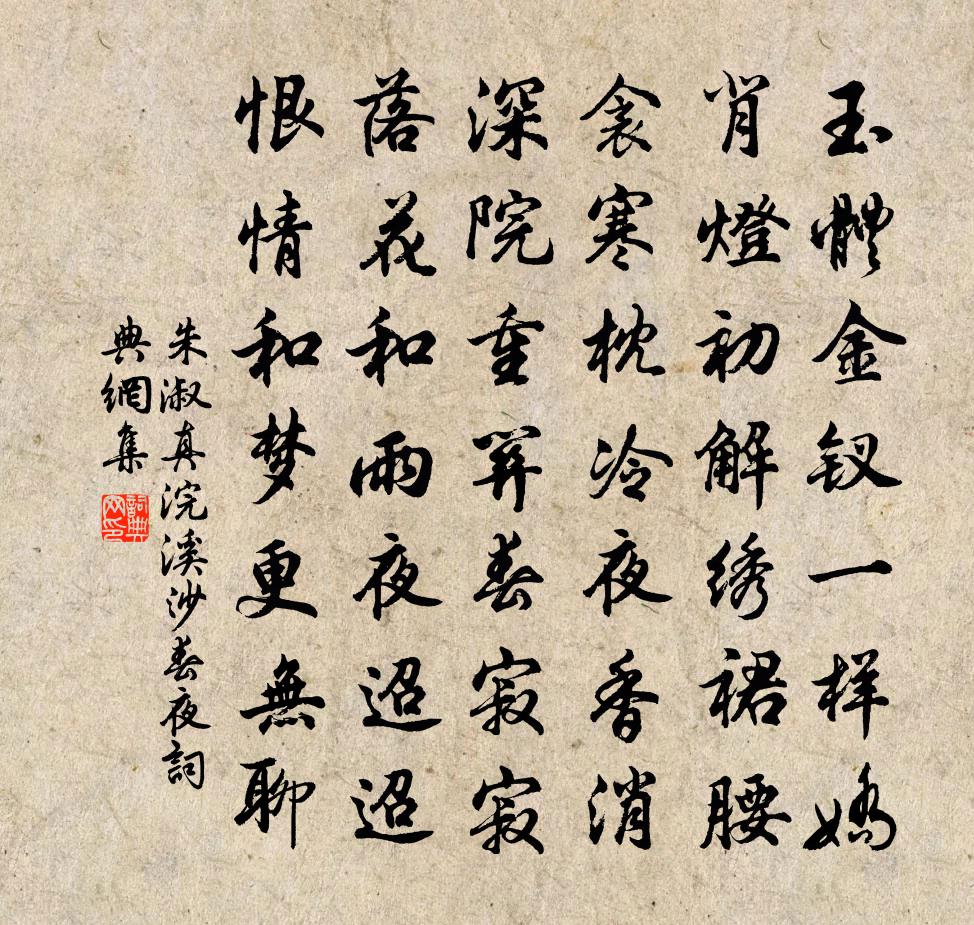 玉體金釵一样嬌
背燈初解绣裙腰
衾寒枕冷夜香消
深院重関春寂寂
落花和雨夜迢迢
恨情和梦更無聊
朱淑真浣溪沙春夜詞
典網集
詞典
网印